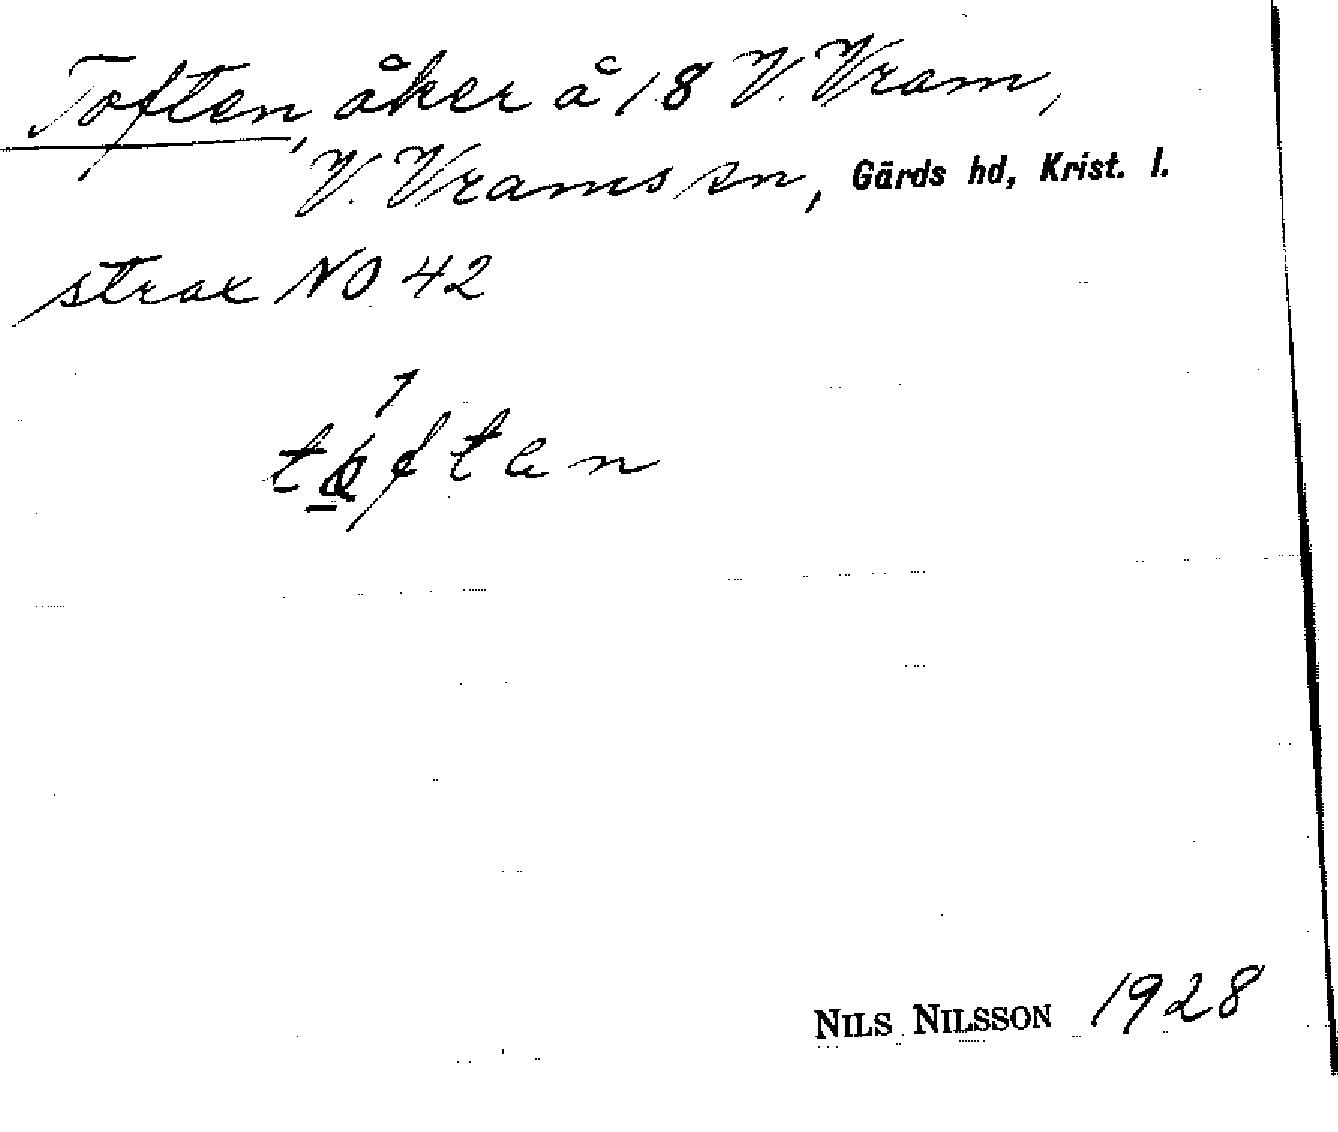 Toften, åker å 18 V. Vram,
V. Vrams sn, Gärds hd, Krist. l.
strax NO 42
NILS NILSSON 1928